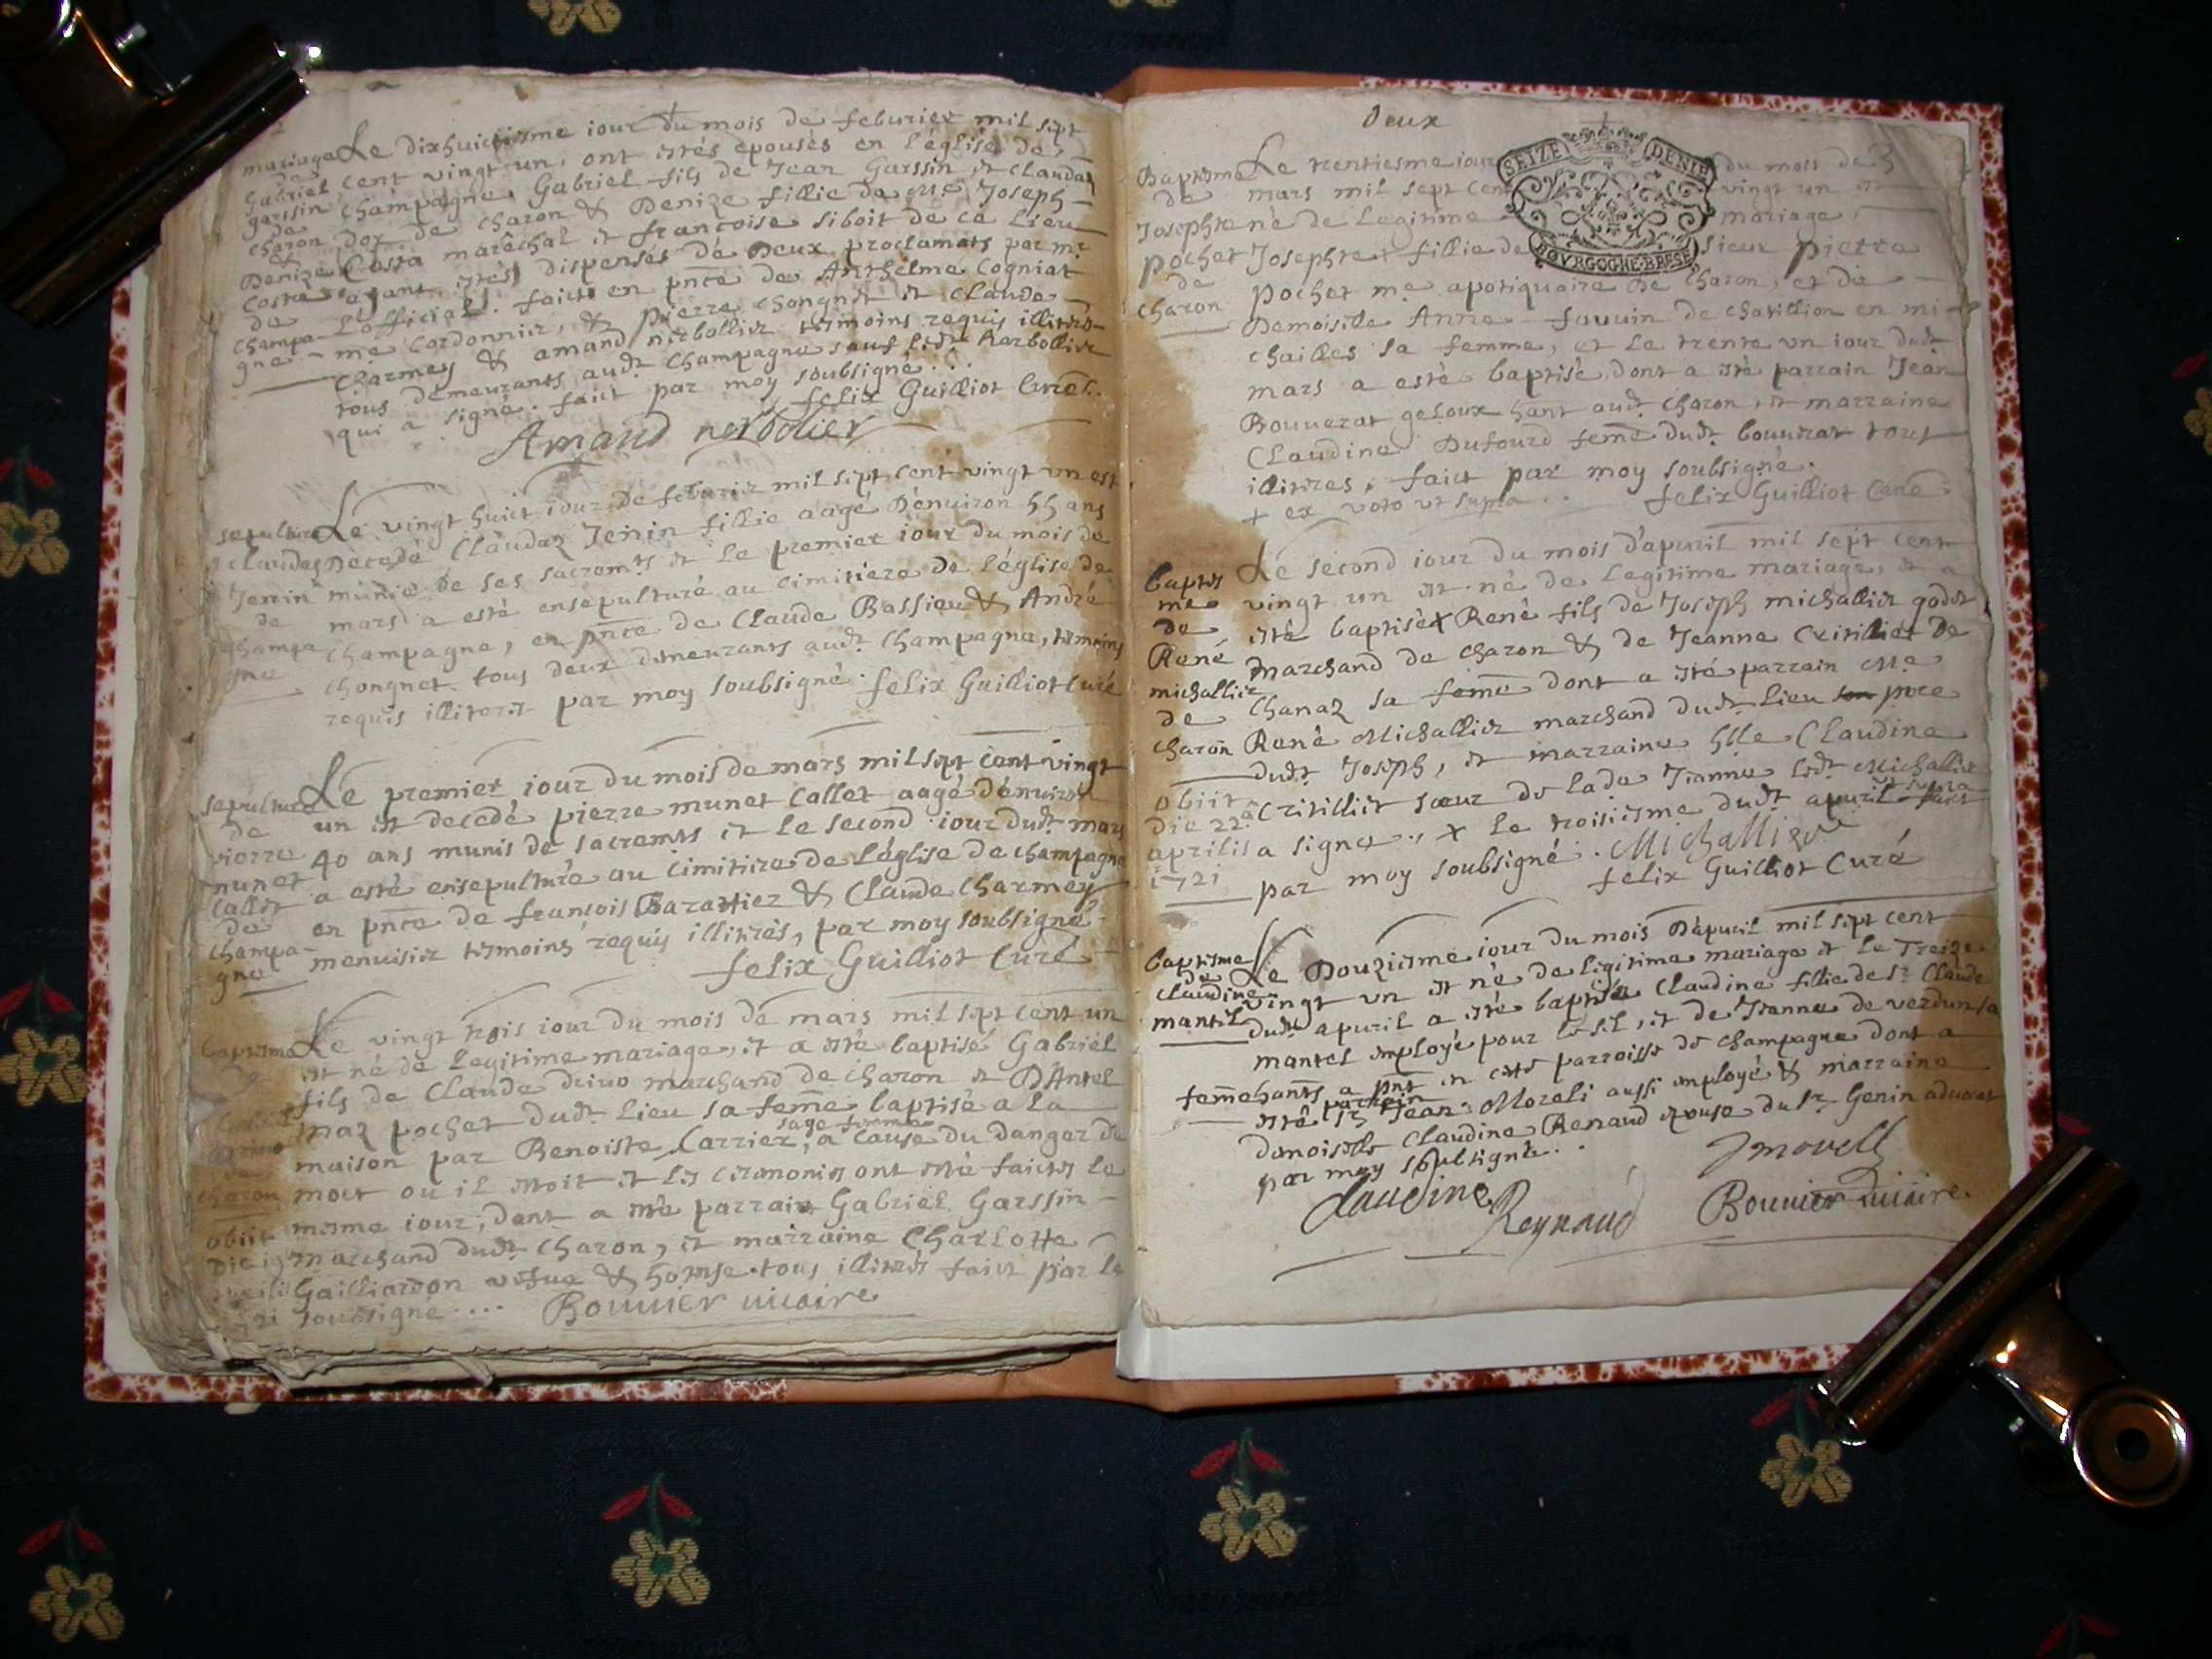 mariage Le dixhuictiesme iour du mois de feburier mil sept
de
Gabriel cent vingt un, ont estés épousés en l'église de
garssin champagne, Gabriel fils de Jean Garssin et Claudaz
de
charon dox de charon & Denize fillie de Joseph
et
Denize Costa maréchal et francoise siboit de ce Lieu
Costa ayant estés dispensés de Deux proclamats par mr
de
champa- L'official. faict en pnce de Anthelme Cogniat
gne me Cordonnier, & pierre chongnet et Claude
Charmey & amand nerbollier tesmoins requis illiterés
tous demeurants audt Champagne sauf ledt Narbollier
qui a signé. faict par moy soubsigné.
felix Guilliot Curé.
Amand nerbolier
sepulture Le vingt huict iour de feburier mil sept cent vingt un est
Claudaz Decedé Claudaz Jenin fillie aagé D'enuiron 55 ans
Jenin munie de ses sacremts et le premier iour du mois de
de mars a esté ensepulturé au cimitiere de l'église de
champa champagne, en pnce de Claude Bassieu & André
gne chongnet tous deux demeurants audt champagne, tesmoins
requis illiterés par moy soubsigné. felix Guilliot Curé
Le premier iour du mois de mars mil sept cent vingt
sepulture
de un est decedé pierre munet Callet aagé d'enuiron
pierre 40 ans munis de sacremts et le second iour dudt mars
munet
Callet a esté ensepulturé au cimitiere de l'église de champagne
de en pnce de francois Barattier & Claude Charmey
champa-
gne menuisier tesmoins requis illiterés, par moy soubsigné
felix Guilliot Curé
baptesme Le vingt trois iour du mois de mars mil sept cent un
est né de legitime mariage, et a esté baptisé Gabriel
fils de Claude marchand de charon et D'Antel
maz pochet dudt lieu sa feme baptisé a la
sage femme
maison par Benoiste Carrier, a cause du danger de
de
charon mort ou il estoit et les ceremonies ont esté faictes le
obiit mesme iour, dont a esté parrain Gabriel Garssin
Die marchand dudt charon, et marraine Charlotte
Gailliardon vefue & tous illiterés faict par le
soubsigné.... Bouuier vicaire
Deux
SEIZE DENIE
BOVRGOGNE·BRESSE
Baptesme Le trentiesme iour du mois de
de mars mil sept cent vingt un est
Josephte né de Legitime mariage
pochet Josephte fillie de sieur pierre
de
charon pochet me apotiquaire de charon, et de
Demoiselle Anne fauuin de chatillion en mi-
chailles sa femme, et le trente un iour dudt
mars a esté baptisé dont a esté parrain Jean
Bouuerat geloux hant audt charon et marraine
Claudine Dufourd feme dudt bouuerat tous
illiteres, faict par moy soubsigné.
+ ex voto ut supra.. felix Guilliot Curé
baptes Le second iour du mois d'apuril mil sept cent
me vingt un est né de legitime mariage, et a
de esté baptisé x René fils de Joseph michallier
René marchand de charon & de Jeanne Critilliet de
michallier
de chanaz sa feme dont a esté parrain me
charon René Michallier marchand dudt lieu pere
dudt Joseph, et marraine hlle Claudine
obiit
die 22a Critilliet sœur de lade Jeanne ledt Michallier
aprilis a signé., x le troisiesme dudt apuril faict
supra
1721 par moy soubsigné. Michallier
felix Guilliot Curé
baptesme Le Douziesme iour du mois D'apuril mil sept cent
de
claudine vingt un est né de legitime mariage et le Treize
mantel dudt apuril a esté baptisée Claudine fillie de sr Claude
mantel employé pour le sel, et de Jeanne de verdun sa
feme hants a pnt en ceste parroisse de champagne dont a
parrain
esté sr Jean Moreli aussi employé & marraine
demoiselle Claudine Renaud epouse du sr Genin aduocat
par moy soubsigné..
Jmorell
Claudine Reynaud Bouuier vicaire